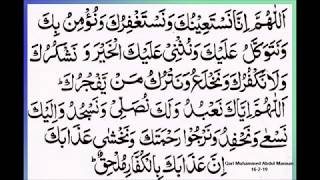 اَللّٰهُمَّ اِنَّا نَسْتَعِيْنُكَ وَنَسْتَغْفِرُكَ وَنُؤْمِنُ بِكَ
وَنَتَوَكَّلُ عَلَيْكَ وَنُثْنِيْ عَلَيْكَ الْخَيْرَ وَنَشْكُرُكَ
وَلَا نَكْفُرُكَ وَنَخْلَعُ وَنَتْرُكُ مَنْ يَّفْجُرُكَ ط
اَللّٰهُمَّ اِيَّاكَ نَعْبُدُ وَلَكَ نُصَلِّيْ وَنَسْجُدُ وَاِلَيْكَ
نَسْعٰى وَنَحْفِدُ وَنَرْجُوْا رَحْمَتَكَ وَنَخْشٰى عَذَابَكَ
اِنَّ عَذَابَكَ بِالْكُفَّارِ مُلْحِقٌ ط
Qari Mohammed Abdul Mannan
16-7-19